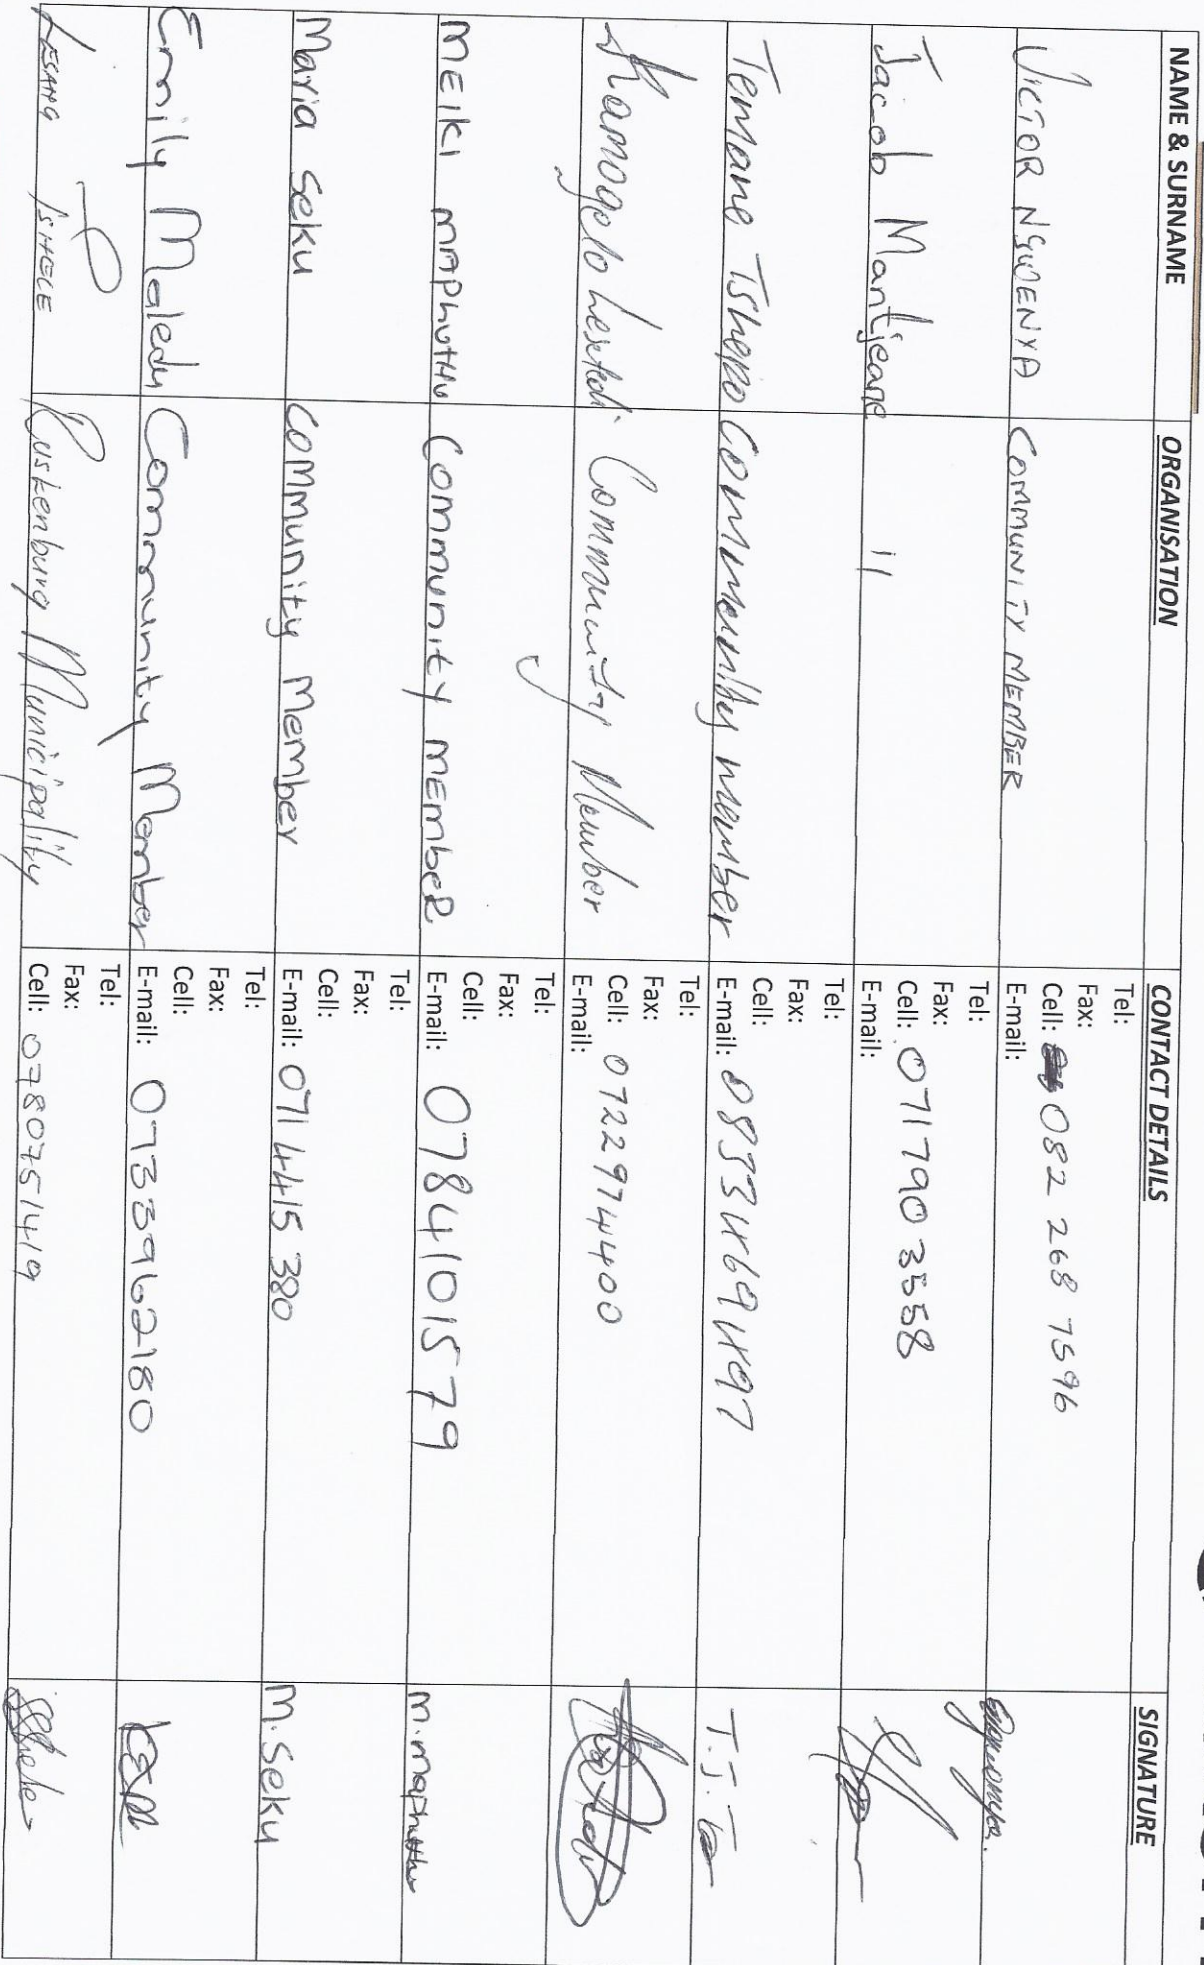 NAME & SURNAME ORGANISATION CONTACT DETAILS SIGNATURE
VICTOR NGWENYA COMMUNITY MEMBER
Tel:
Fax:
Cell: 082 268 7596
E-mail:
Jacob Mantjeane 11
Tel:
Fax:
Cell: 071790 3558
E-mail:
Temane Tshepo Community member T.J.
Tel:
Fax:
Cell:
E-mail: 0833469497
Khamogelo Lesedi Community Member
Tel:
Fax:
Cell: 0722974400
E-mail:
MEIKI MAPHUTHU COMMUNITY MEMBER m.maphuthu
Tel:
Fax:
Cell:
E-mail: 0784101579
Maria Seku Community Member M.Seku
Tel:
Fax:
Cell:
E-mail: 071 4415 380
Emily Maledu Community Member
Tel:
Fax:
Cell:
E-mail: 0733962180
LESANG TSHELE Rustenburg Municipality
Tel:
Fax:
Cell: 0780751419